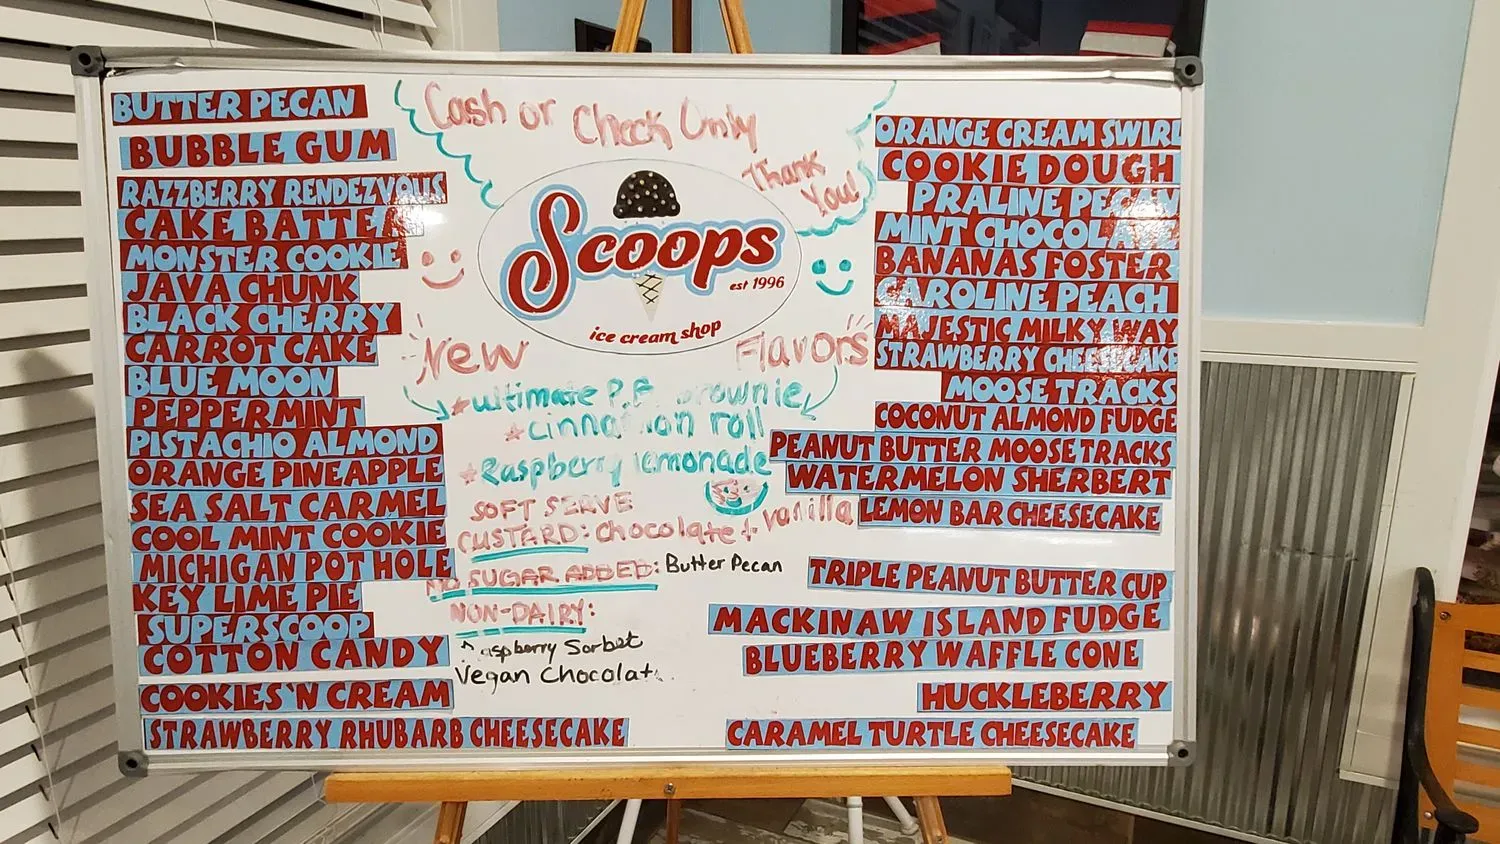 BUTTER PECAN
BUBBLE GUM
RAZZBERRY RENDEZVOUS
CAKE BATTER
MONSTER COOKIE
JAVA CHUNK
BLACK CHERRY
CARROT CAKE
BLUE MOON
PEPPERMINT
PISTACHIO ALMOND
ORANGE PINEAPPLE
SEA SALT CARMEL
COOL MINT COOKIE
MICHIGAN POT HOLE
KEY LIME PIE
SUPERSCOOP
COTTON CANDY
COOKIES'N CREAM
STRAWBERRY RHUBARB CHEESECAKE
Cash or Check Only
Thank
You!
Scoops
est 1996
ice cream shop
New Flavors
Ultimate P.B. brownie
cinnamon roll
Raspberry lemonade
SOFT SERVE
CUSTARD: chocolate + vanilla
NO SUGAR ADDED: Butter Pecan
NON-DAIRY:
Raspberry Sorbet
Vegan Chocolate
ORANGE CREAM SWIRL
COOKIE DOUGH
PRALINE PECAN
MINT CHOCOLATE
BANANAS FOSTER
CAROLINE PEACH
MAJESTIC MILKY WAY
STRAWBERRY CHEESECAKE
MOOSE TRACKS
COCONUT ALMOND FUDGE
PEANUT BUTTER MOOSE TRACKS
WATERMELON SHERBERT
LEMON BAR CHEESECAKE
TRIPLE PEANUT BUTTER CUP
MACKINAW ISLAND FUDGE
BLUEBERRY WAFFLE CONE
HUCKLEBERRY
CARAMEL TURTLE CHEESECAKE